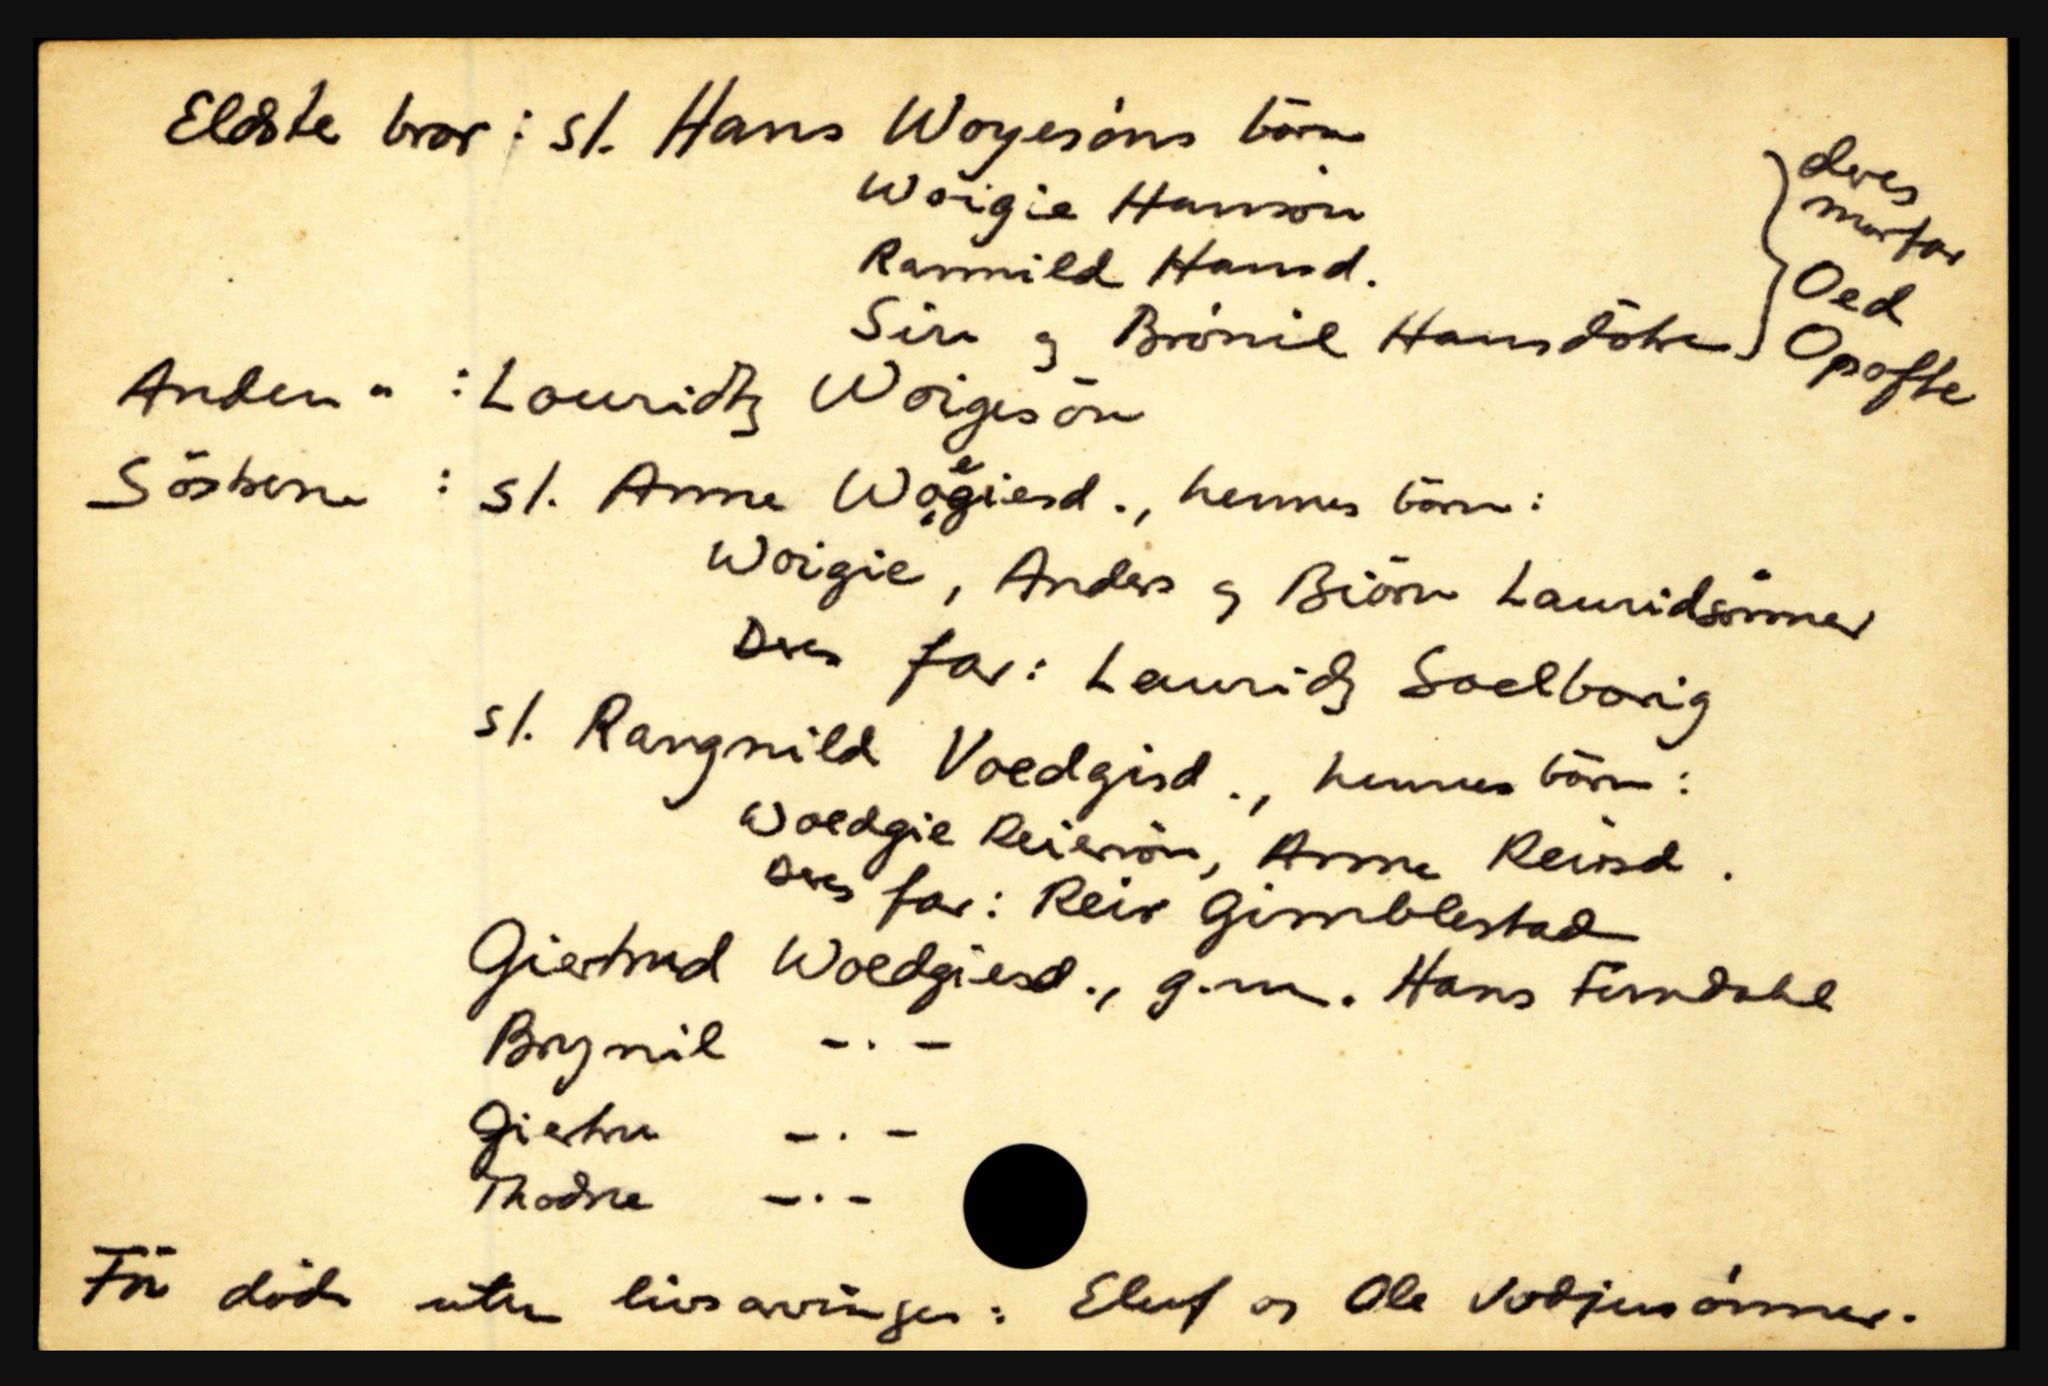 Eldste bror : sl. Hans Woyesöns börn
Woigie Hansön
Rannild Hansd.
Siri og Brönil Hansdötre } deres morfar Oed Opofte
Anden " : Louridtz Woigesön
Söstrene : sl. Anne Woegiesd., hennes börn :
Woigie, Anders og Biörn Lauridsönner
Deres far : Lauridz Soelborig
sl. Rangnild Voedgisd., hennes börn :
Woedgie Reiersön, Anne Reirsd.
Deres far : Reir Gimblestad
Giertrud Woedgiesd., g.m. Hans Ferndahl
Brynil — . —
Giertru — . —
Thodne — . —
För döde uten livsarvinger : Eluf og Ole Vodjensönner.